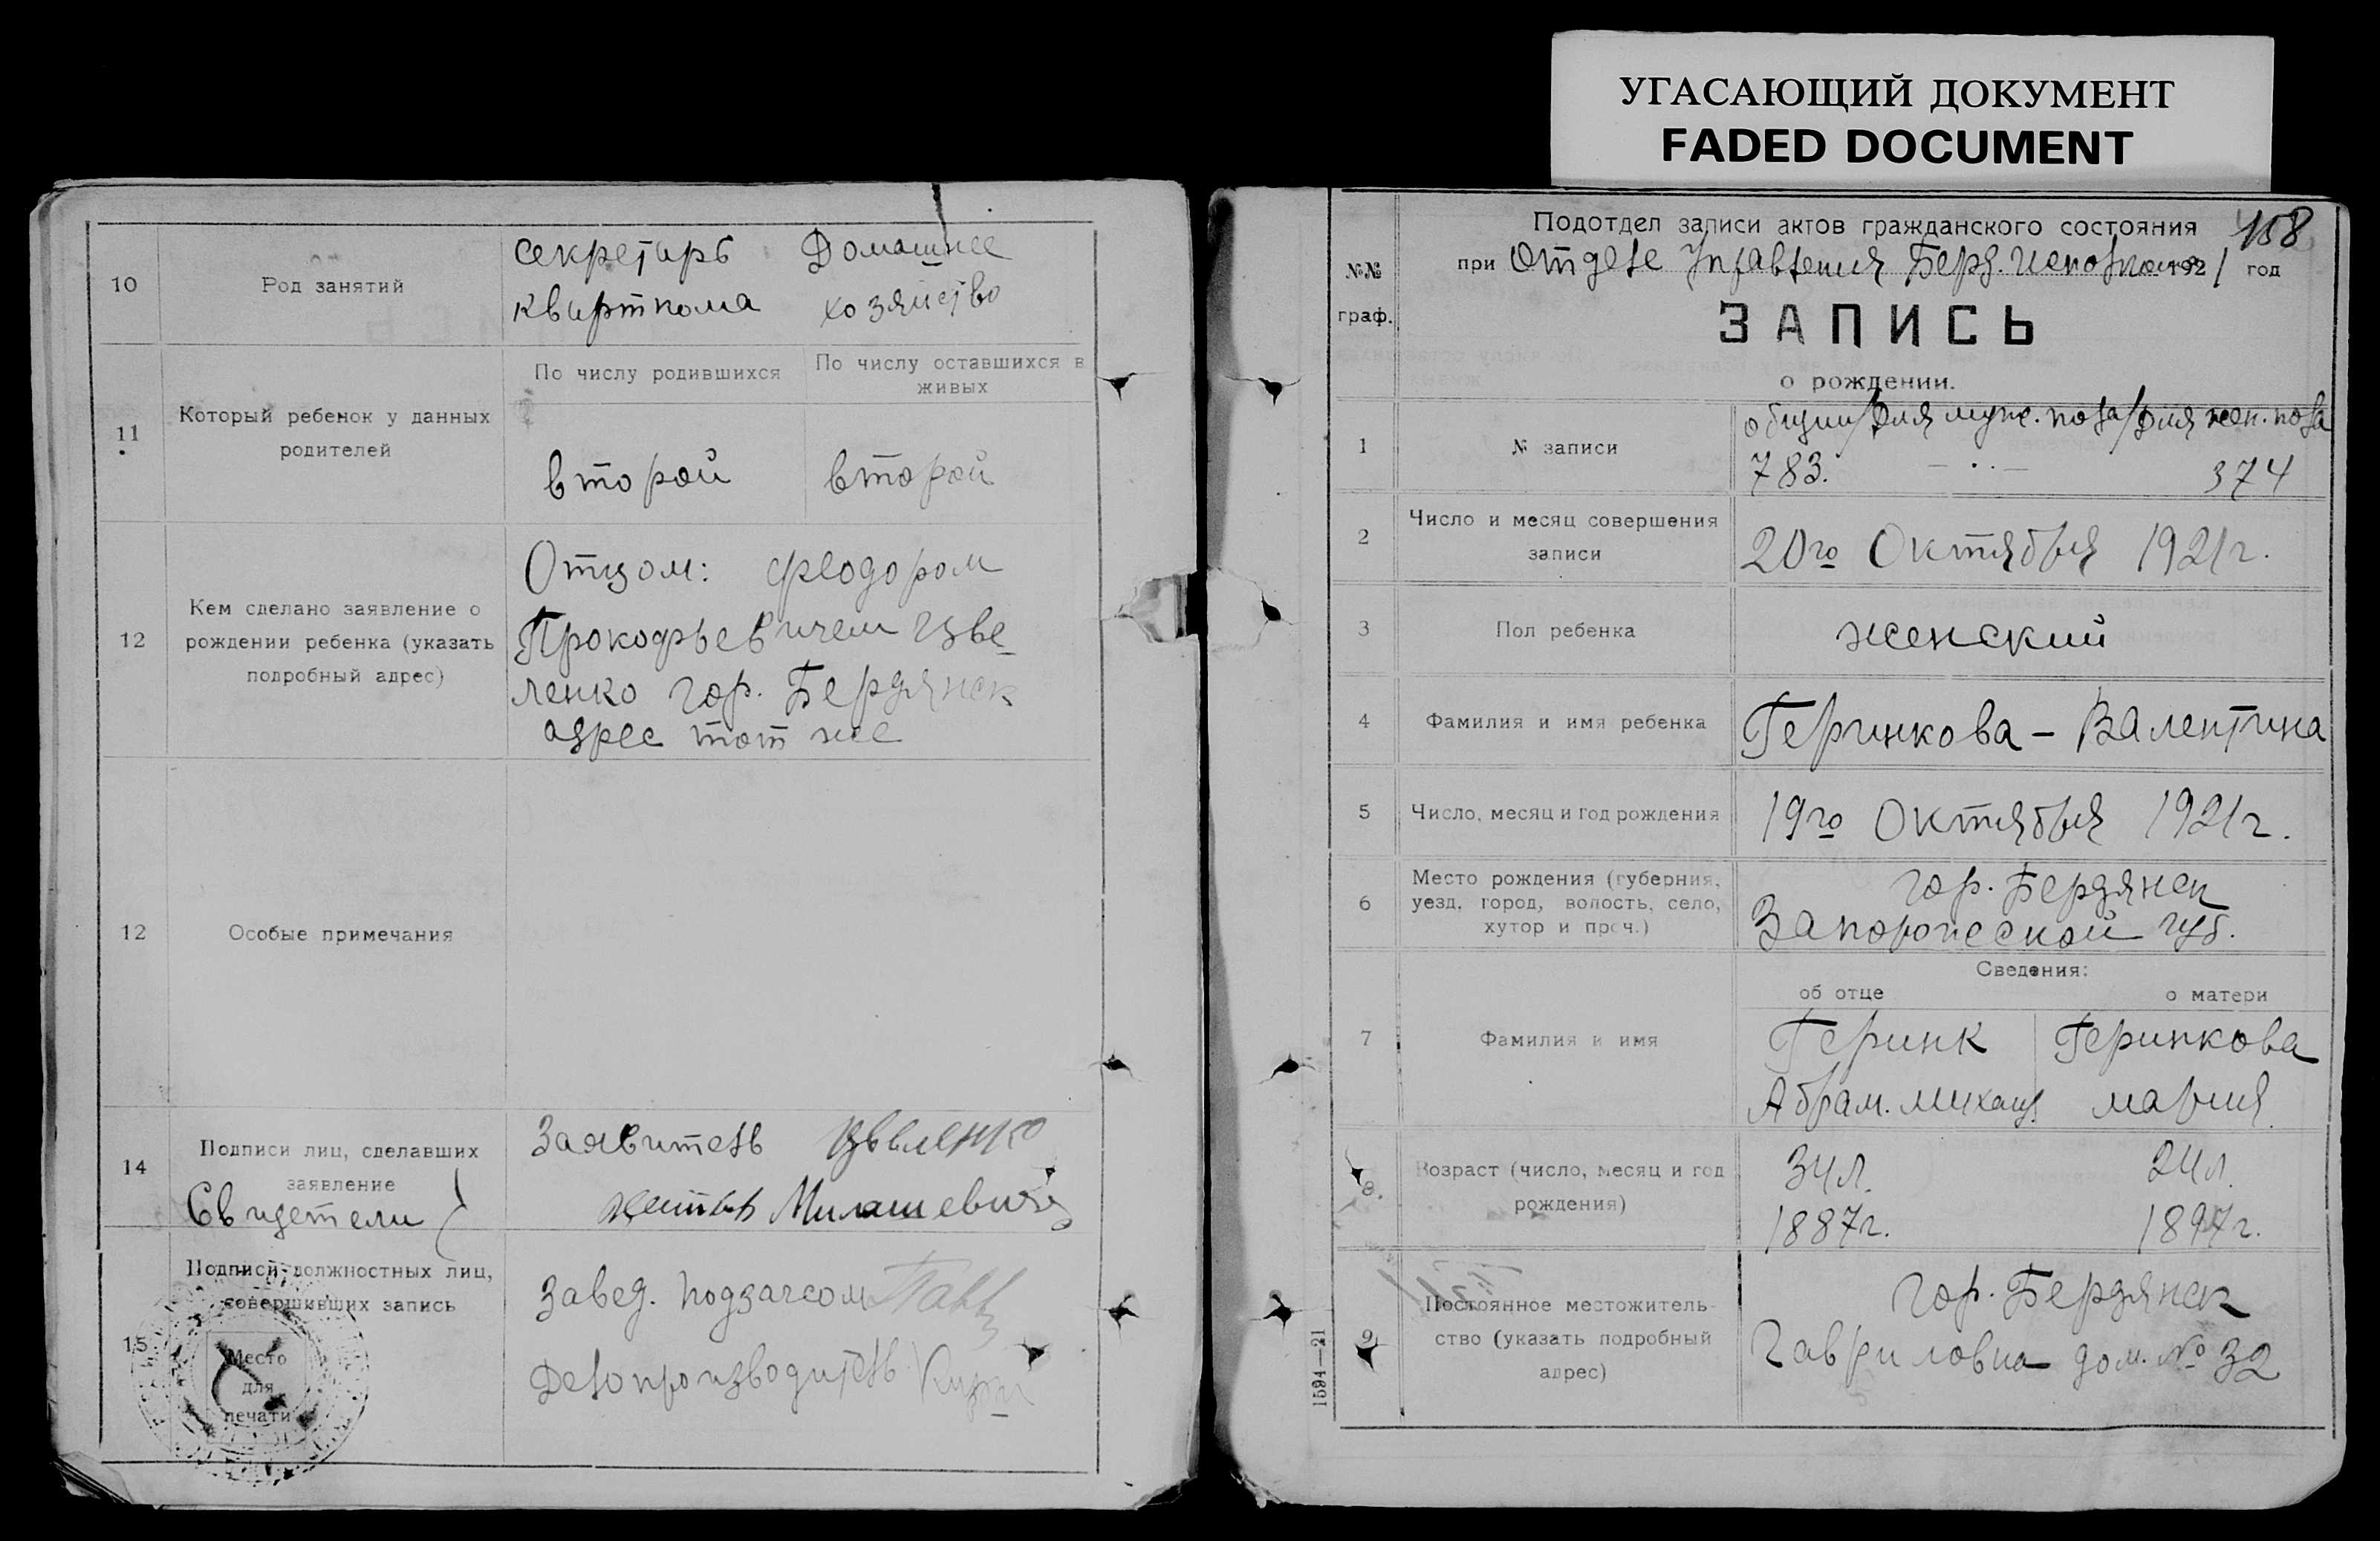 УГАСАЮЩИЙ ДОКУМЕНТ
FADED DOCUMENT
10
Род занятий
секретарь
Домашнее
квирткома
хозяйство
11
Который ребенок у данных
родителей
По числу родившихся
По числу оставшихся в
живых
второй
второй
12
Кем сделано заявление о
рождении ребенка (указать
подробный адрес)
Отцом: Феодором
Прокофьевичем Цве
ленко гор. Бердянск
адрес тот же
12
Особые примечания
14
Подписи лиц, сделавших
заявление
Свидетели
Заявитель Цвеленко
Милашевич
15
Подписи должностных лиц,
совершивших запись
Место
для
печати
Завед. Подзагсом
Делопроизводитель
158
Подотдел записи актов гражданского состояния
при Отделе Управления Берд. Исполкома 1921 год
№№
граф.
ЗАПИСЬ
о рождении.
1
№ записи
общий/для муж. пола/для жен. пола
783. — · · — 374
2
Число и месяц совершения
записи
20го Октября 1921г.
3
Пол ребенка
женский
4
Фамилия и имя ребенка
Геринкова – Валентина
5
Число, месяц и год рождения
19го Октября 1921г.
6
Место рождения (губерния,
уезд, город, волость, село,
хутор и проч.)
гор. Бердянск
Запорожской губ.
Сведения:
об отце
о матери
7
Фамилия и имя
Геринк
Геринкова
Абрам. Михаил.
Мария
8.
Возраст (число, месяц и год
рождения)
34л.
24л.
1887г.
1897г.
9
Постоянное местожитель-
ство (указать подробный
адрес)
гор. Бердянск
Гавриловка дом. № 32
1594—21